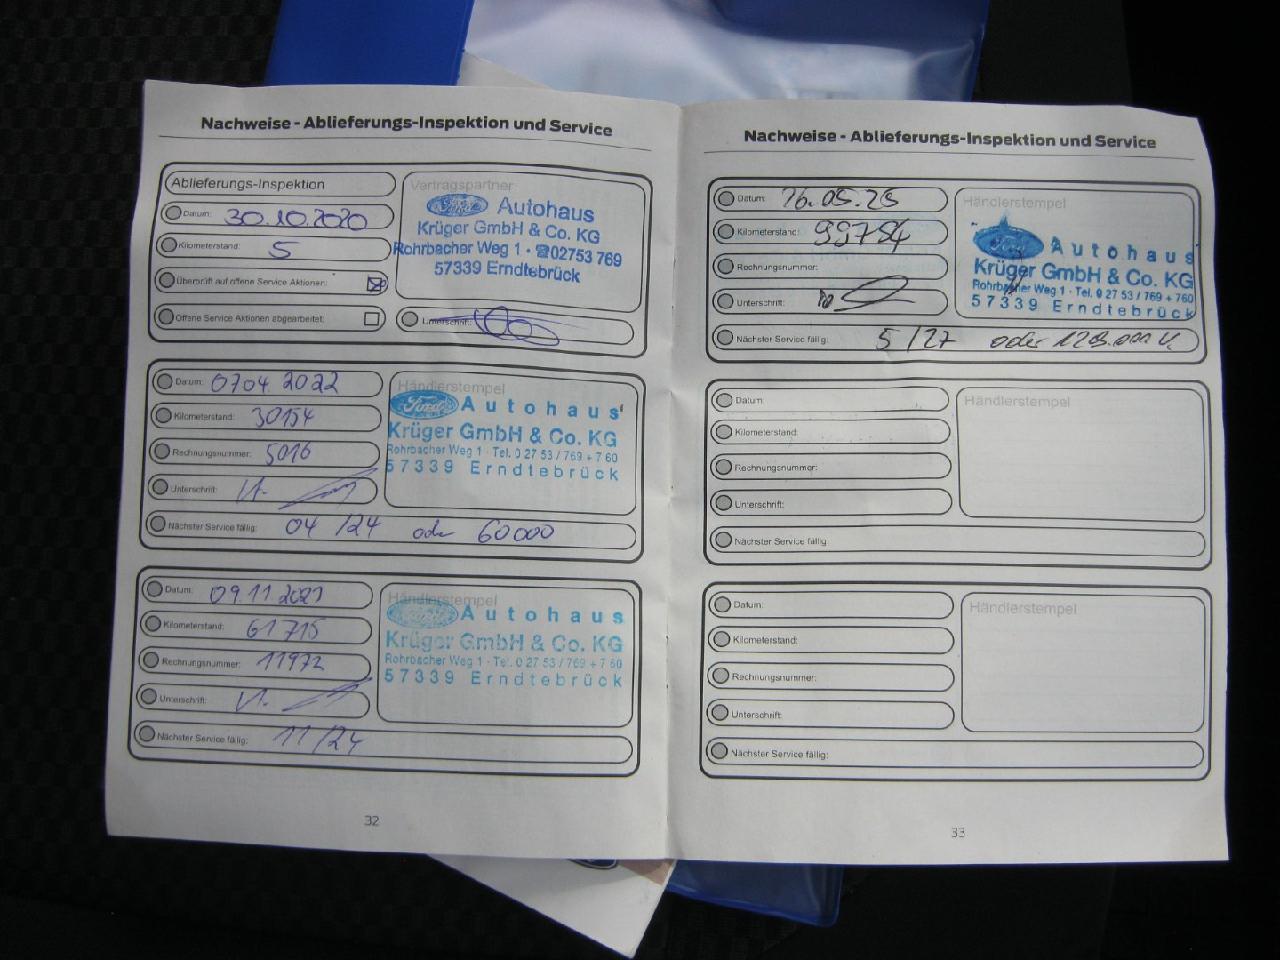 Nachweise - Ablieferungs-Inspektion und Service
Ablieferungs-Inspektion
Datum: 30.10.2020
Kilometerstand: 5
Überprüft auf offene Service Aktionen:
Offene Service Aktionen abgearbeitet:
Vertragspartner
Ford Autohaus
Krüger GmbH & Co. KG
Rohrbacher Weg 1 · ☎02753 769
57339 Erndtebrück
Unterschrift:
Datum: 0704 2022
Kilometerstand: 30154
Rechnungsnummer: 5016
Unterschrift:
Nächster Service fällig: 04 /24 oder 60000
Händlerstempel
Ford Autohaus
Krüger GmbH & Co. KG
Rohrbacher Weg 1 · Tel. 0 27 53 / 769 + 7 60
57339 Erndtebrück
Datum: 09.11.
Kilometerstand: 61715
Rechnungsnummer: 11972
Unterschrift:
Nächster Service fällig: 11/24
Händlerstempel
Autohaus
Krüger GmbH & Co. KG
Rohrbacher Weg 1 · Tel. 0 27 53 / 769 + 7 60
57339 Erndtebrück
32
Nachweise - Ablieferungs-Inspektion und Service
Datum: 26.05.25
Kilometerstand: 99784
Rechnungsnummer:
Unterschrift:
Nächster Service fällig: 5/27 oder
Händlerstempel
Ford Autohaus
Krüger GmbH & Co. KG
Rohrbacher Weg 1 · Tel. 0 27 53 / 769 + 760
57339 Erndtebrück
Datum:
Kilometerstand:
Rechnungsnummer:
Unterschrift:
Nächster Service fällig
Händlerstempel
Datum:
Kilometerstand:
Rechnungsnummer:
Unterschrift:
Nächster Service fällig:
Händlerstempel
33